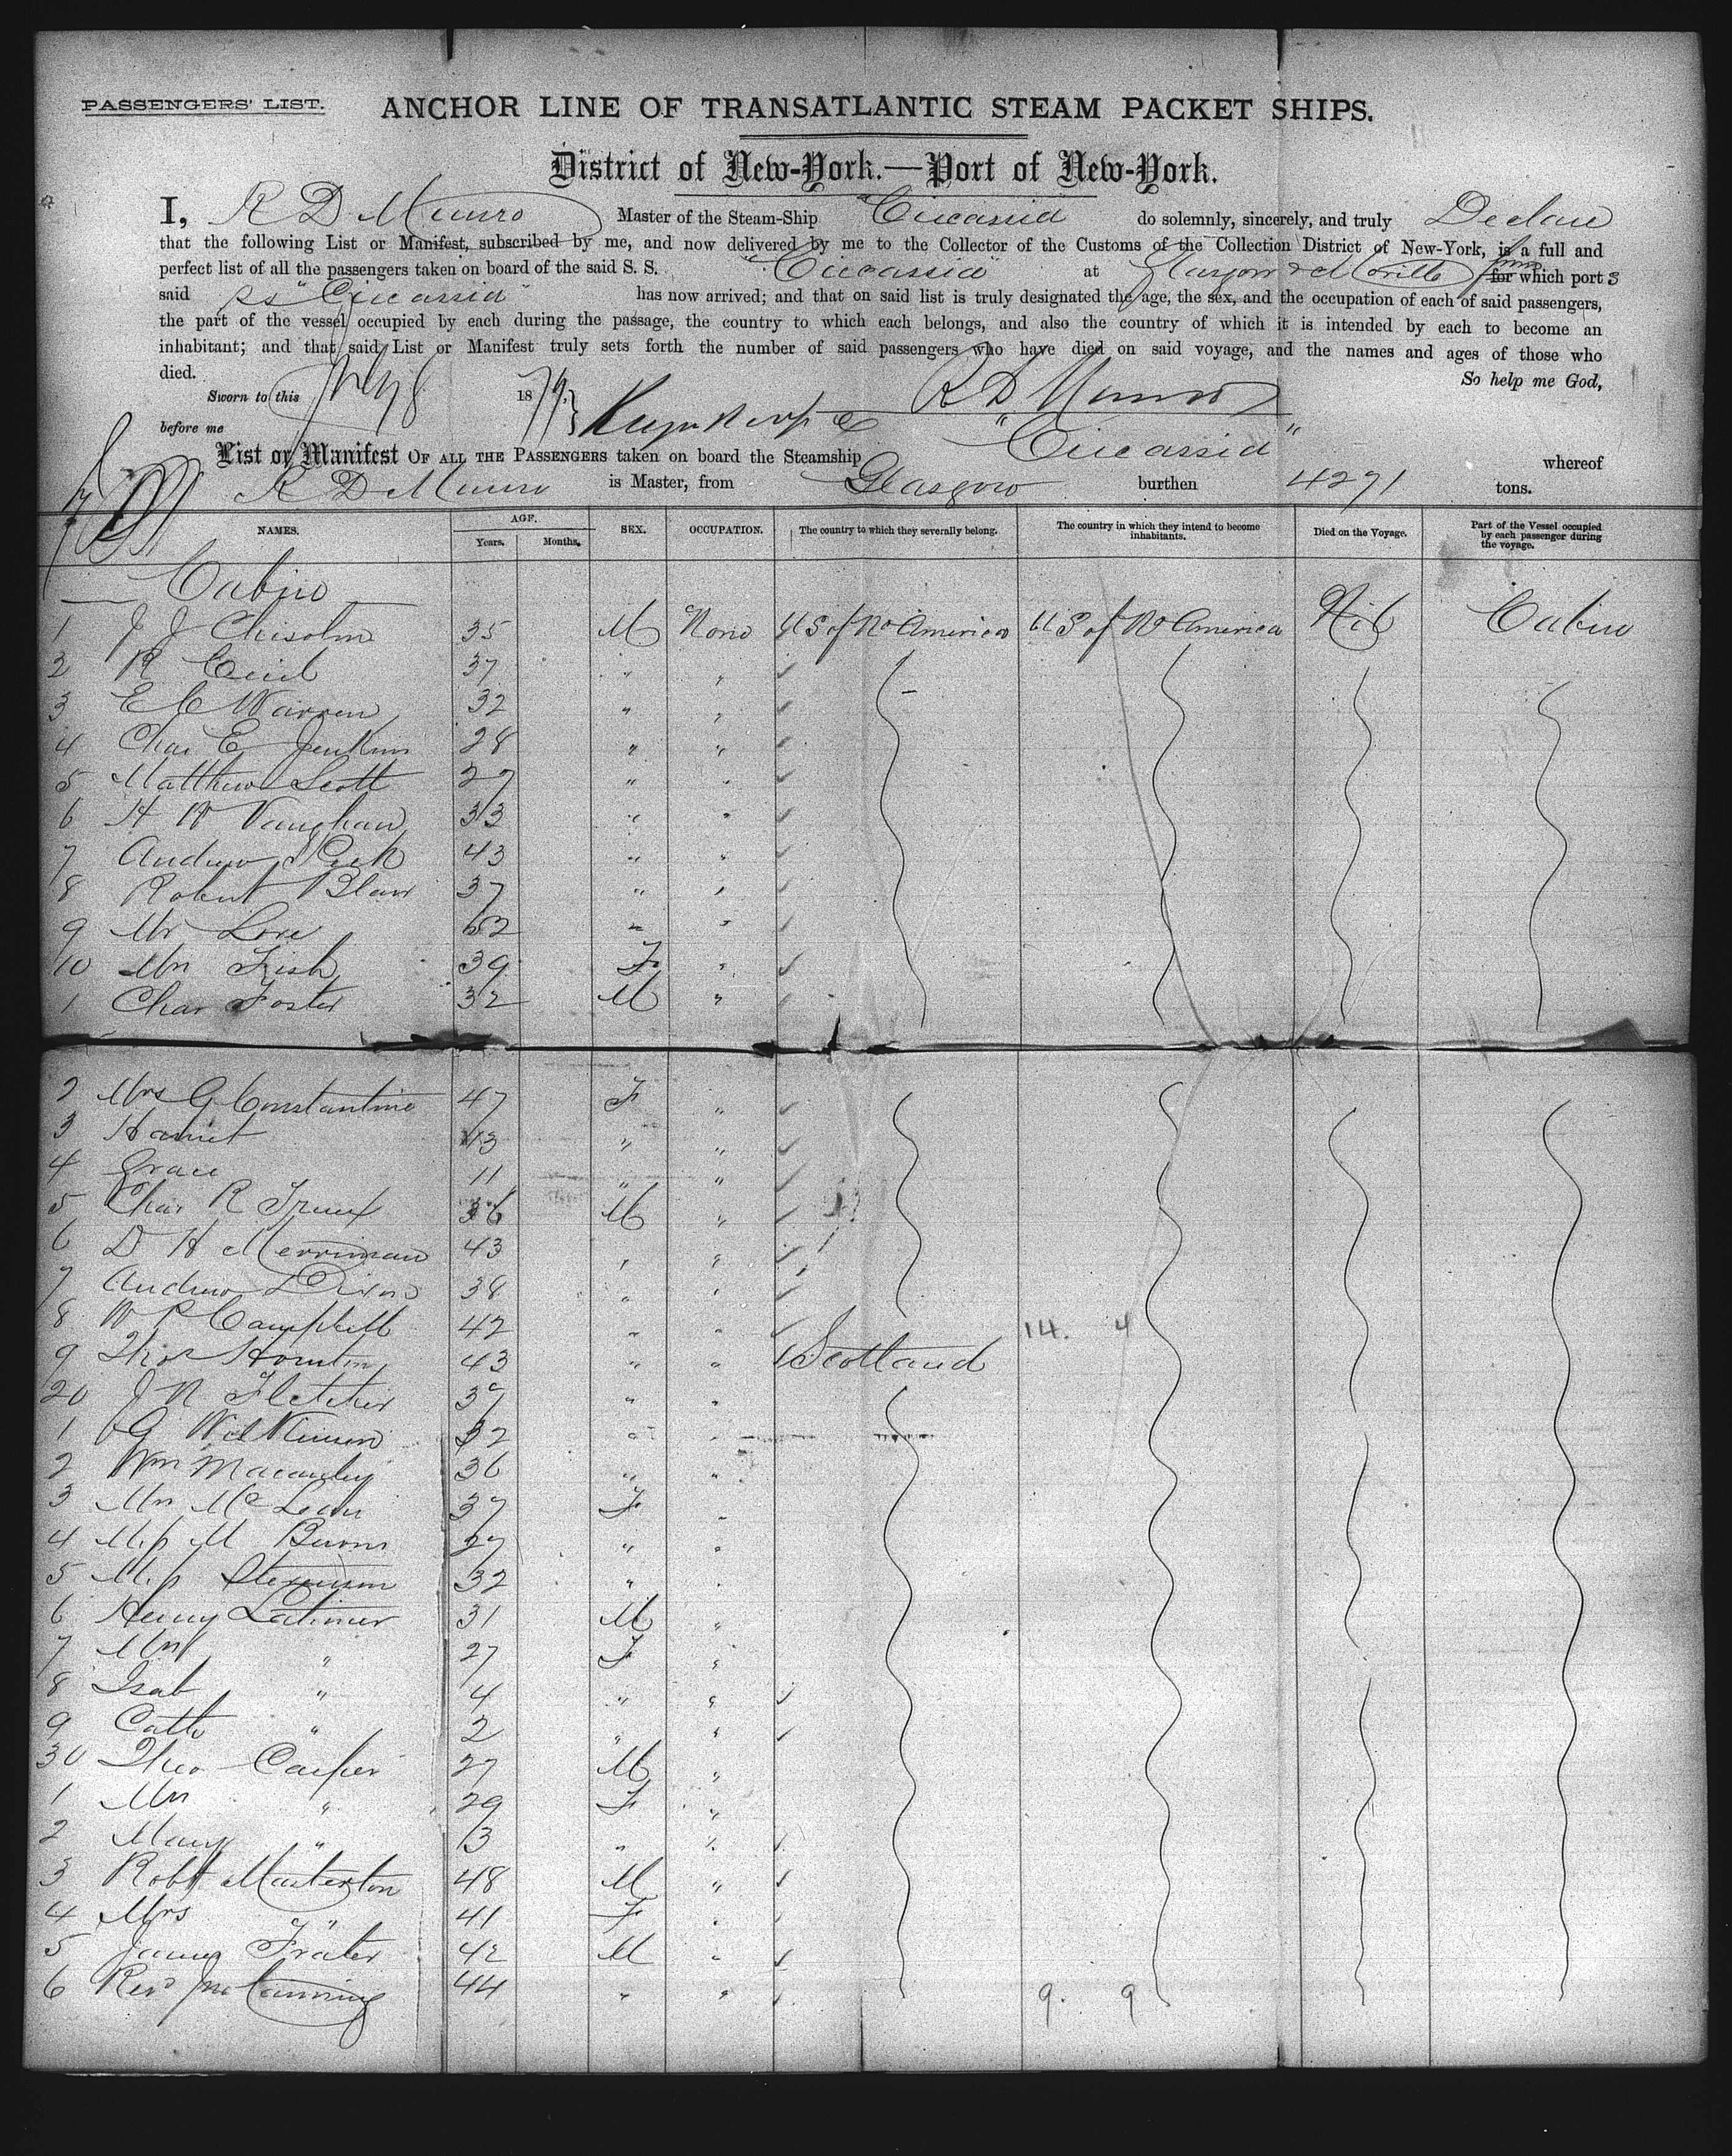 PASSENGERS' LIST.
ANCHOR LINE OF TRANSATLANTIC STEAM PACKET SHIPS.
District of New-York.—Port of New-York.
I, R D Munro Master of the Steam-Ship "Circassia do solemnly, sincerely, and truly Declare
that the following List or Manifest, subscribed by me, and now delivered by me to the Collector of the Customs of the Collection District of New-York, is a full and
perfect list of all the passengers taken on board of the said S. S. "Circassia" at Glasgow & Moville from for which port s
said SS "Circassia" has now arrived; and that on said list is truly designated the age, the sex, and the occupation of each of said passengers,
the part of the vessel occupied by each during the passage, the country to which each belongs, and also the country of which it is intended by each to become an
inhabitant; and that said List or Manifest truly sets forth the number of said passengers who have died on said voyage, and the names and ages of those who
died.
So help me God,
Sworn to this July 8 1879. R D Munro
before me
List or Manifest OF ALL THE PASSENGERS taken on board the Steamship "Circassia" whereof
R D Munro is Master, from Glasgow burthen 4271 tons.
NAMES. AGE. Years. Months. SEX. OCCUPATION. The country to which they severally belong. The country in which they intend to become inhabitants. Died on the Voyage. Part of the Vessel occupied by each passenger during the voyage.
Cabin
1 J J Chisolm 35 M None U S of No America U S of No America Nil Cabin
2 R Cecil 37 " "
3 E C Warren 32 " "
4 Chas E Jenkins 28 " "
5 Matthew Scott 27 " "
6 H W Vaughan 33 " "
7 Andrew Peck 43 " "
8 Robert Blair 37 " "
9 Mr Love 62 " "
10 Mrs Fish 39 F "
1 Chas Foster 32 M "
2 Mrs G Constantine 47 F "
3 Harriet 13 " "
4 Grace 11 " "
5 Chas R Truex 36 M "
6 D H Merriman 43 " "
7 Andrew Dixon 38 " "
8 W P Campbell 42 " " 14. 4
9 Thos 43 " " Scotland
20 J N Fletcher 37 " "
1 Wilkinson 32 " "
2 Wm Macauley 36 " "
3 Mrs McLean 37 F "
4 Miss M Burns 27 " "
5 Miss Stevenson 32 " "
6 Henry Latimer 31 M "
7 Mrs " 27 F "
8 Isab " 4 " "
9 Cath " 2 " "
30 Theo 27 M "
1 Mrs " 29 F "
2 Mary " 3 " "
3 Robt Masterton 48 M "
4 Mrs " 41 F "
5 James Frater 42 M "
6 Revd Jno Canning 44 " " 9. 9